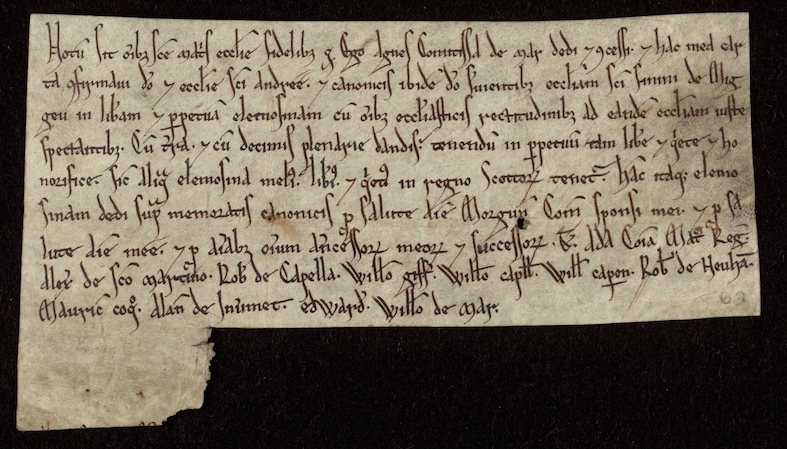 Notū sit ōibȝ scē mat̄s ecclīe fidelibȝ q̄. Ego Agnes Comitissa de mar dedi ⁊ ꝯcessi. ⁊ hac mea car
ta ꝯfirmaui dō ⁊ ecclīe sc̄i andreē. ⁊ canonicis ibidē dō s̄uientibȝ eccl̄iam sc̄i finini de Mig
geu in lib̄am ⁊ ꝑpetuā elemosinam cū ōibȝ eccl̄iasticis rectitudinibȝ ad eandē eccl̄iam iuste
spectantibȝ. Cū t̄ra. ⁊ cū decimis plenarie dandis: tenendū in ꝑpetuū tam lib̄e ⁊ q̄ete ⁊ ho
norifice. sic aliq̄ elemosina meli᷒. lib̄i᷒. ⁊ q̄eti᷒ in regno Scottoꝝ tenet᷑. hāc itaq; elemo
sinam dedi sup̄ memoratis canonicis ꝓ salute aīe Morgun̄ Com̄ sponsi mei. ⁊ ꝓ sa
lute aīe meē. ⁊ ꝓ aīabȝ oīum anc̄essoꝝ meoꝝ ⁊ successoꝝ. T̄. Ada Com̄. Mat̄ Reg̅.
Alex̄ de Scō martino. Rob̄ de Capella. Willo giff̄. Willo capll̄. Will̄ capon. Rob̄ de Neuhā.
Mauric̄ coq̄. Alan̄ de
edward̄. Willo de mar.
62